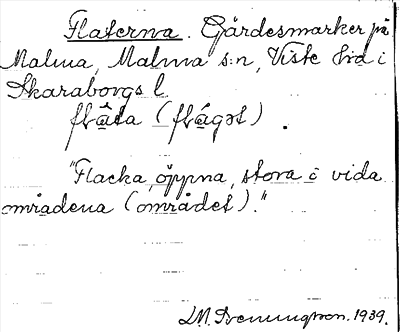 Flaterna. Gärdesmarker på
Malma, Malma s:n, Viste hd i
Skaraborgs l.
"Flacka, öppna, stora i vida
områdena (området)."
1939.